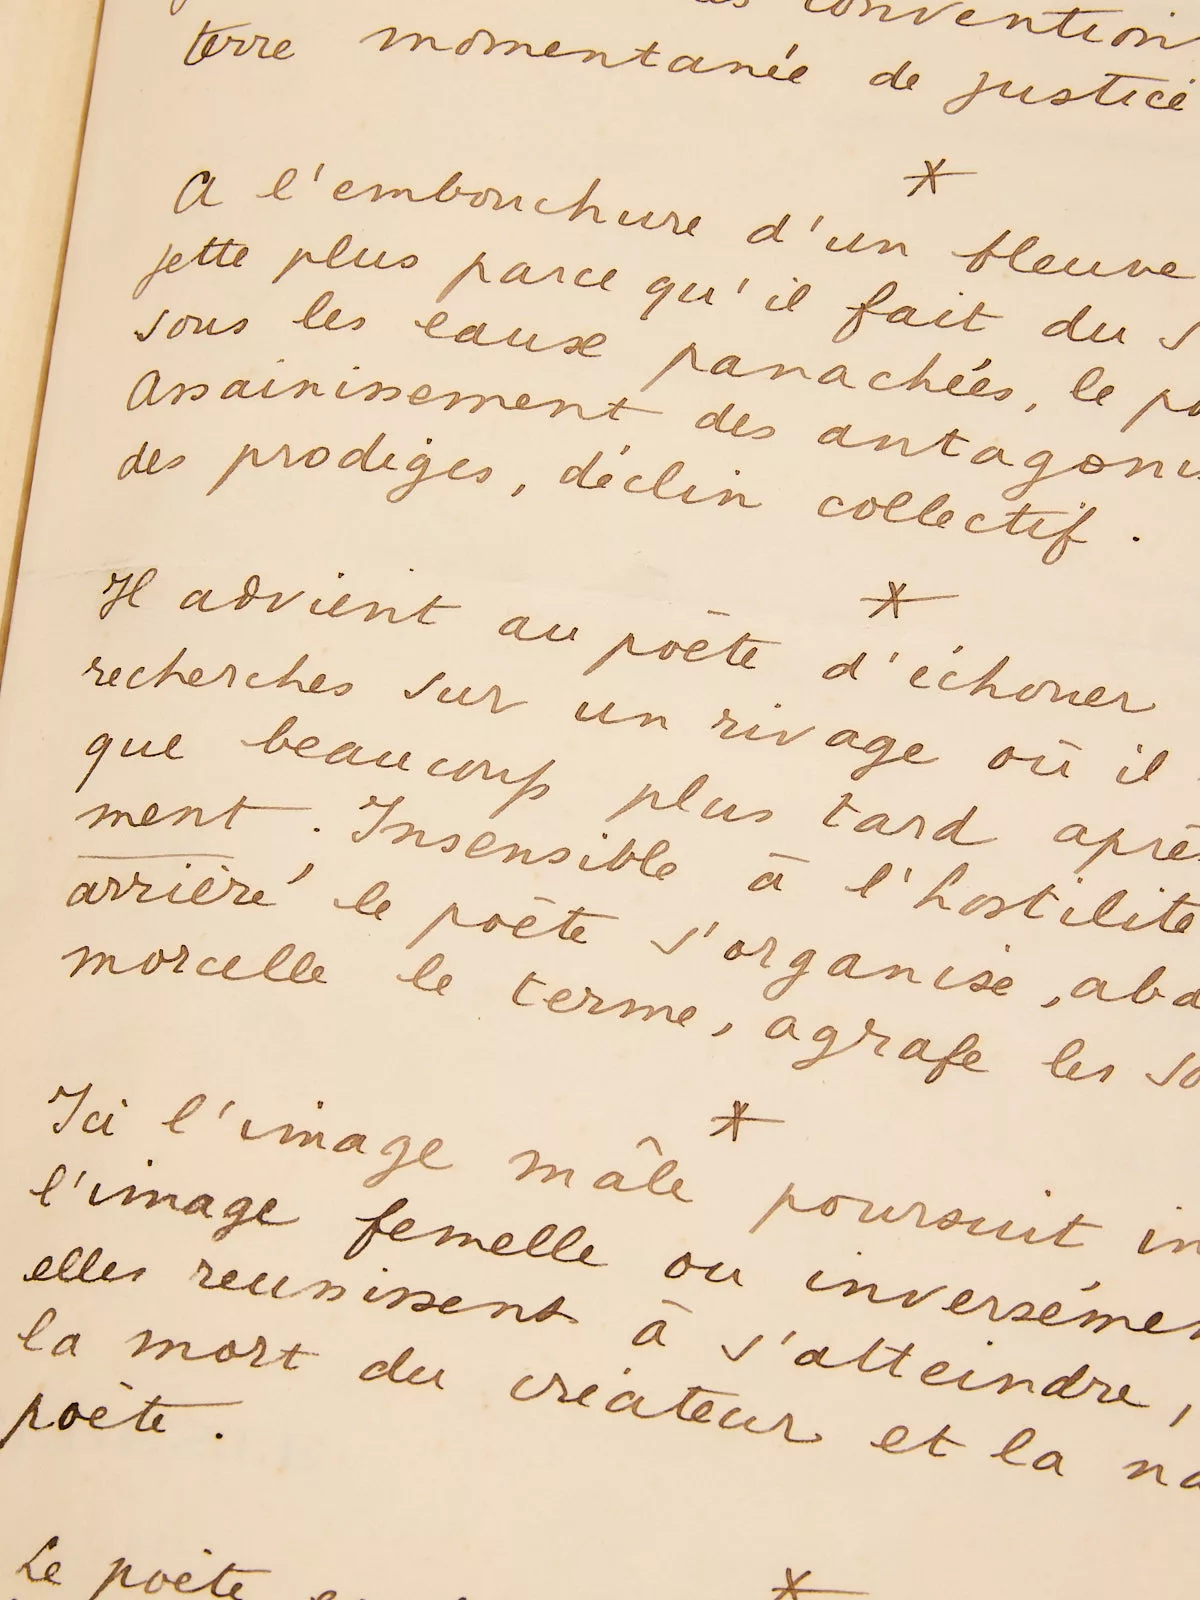 convention
terre momentanée de justice
*
A l'embouchure d'un fleuve
jette plus parce qu'il fait du s
sous les eaux panachées, le po
Assainissement des antagonis
des prodiges, déclin collectif.
*
Il advient au poète d'échouer
recherches sur un rivage où il
que beaucoup plus tard après
ment. Insensible à l'hostilité
arriéré le poète s'organise, aba
morcelle le terme, agrafe les so
*
Ici l'image mâle poursuit in
l'image femelle ou inversémen
elles reunissent à s'atteindre,
la mort du créateur et la na
poète.
*
Le poète